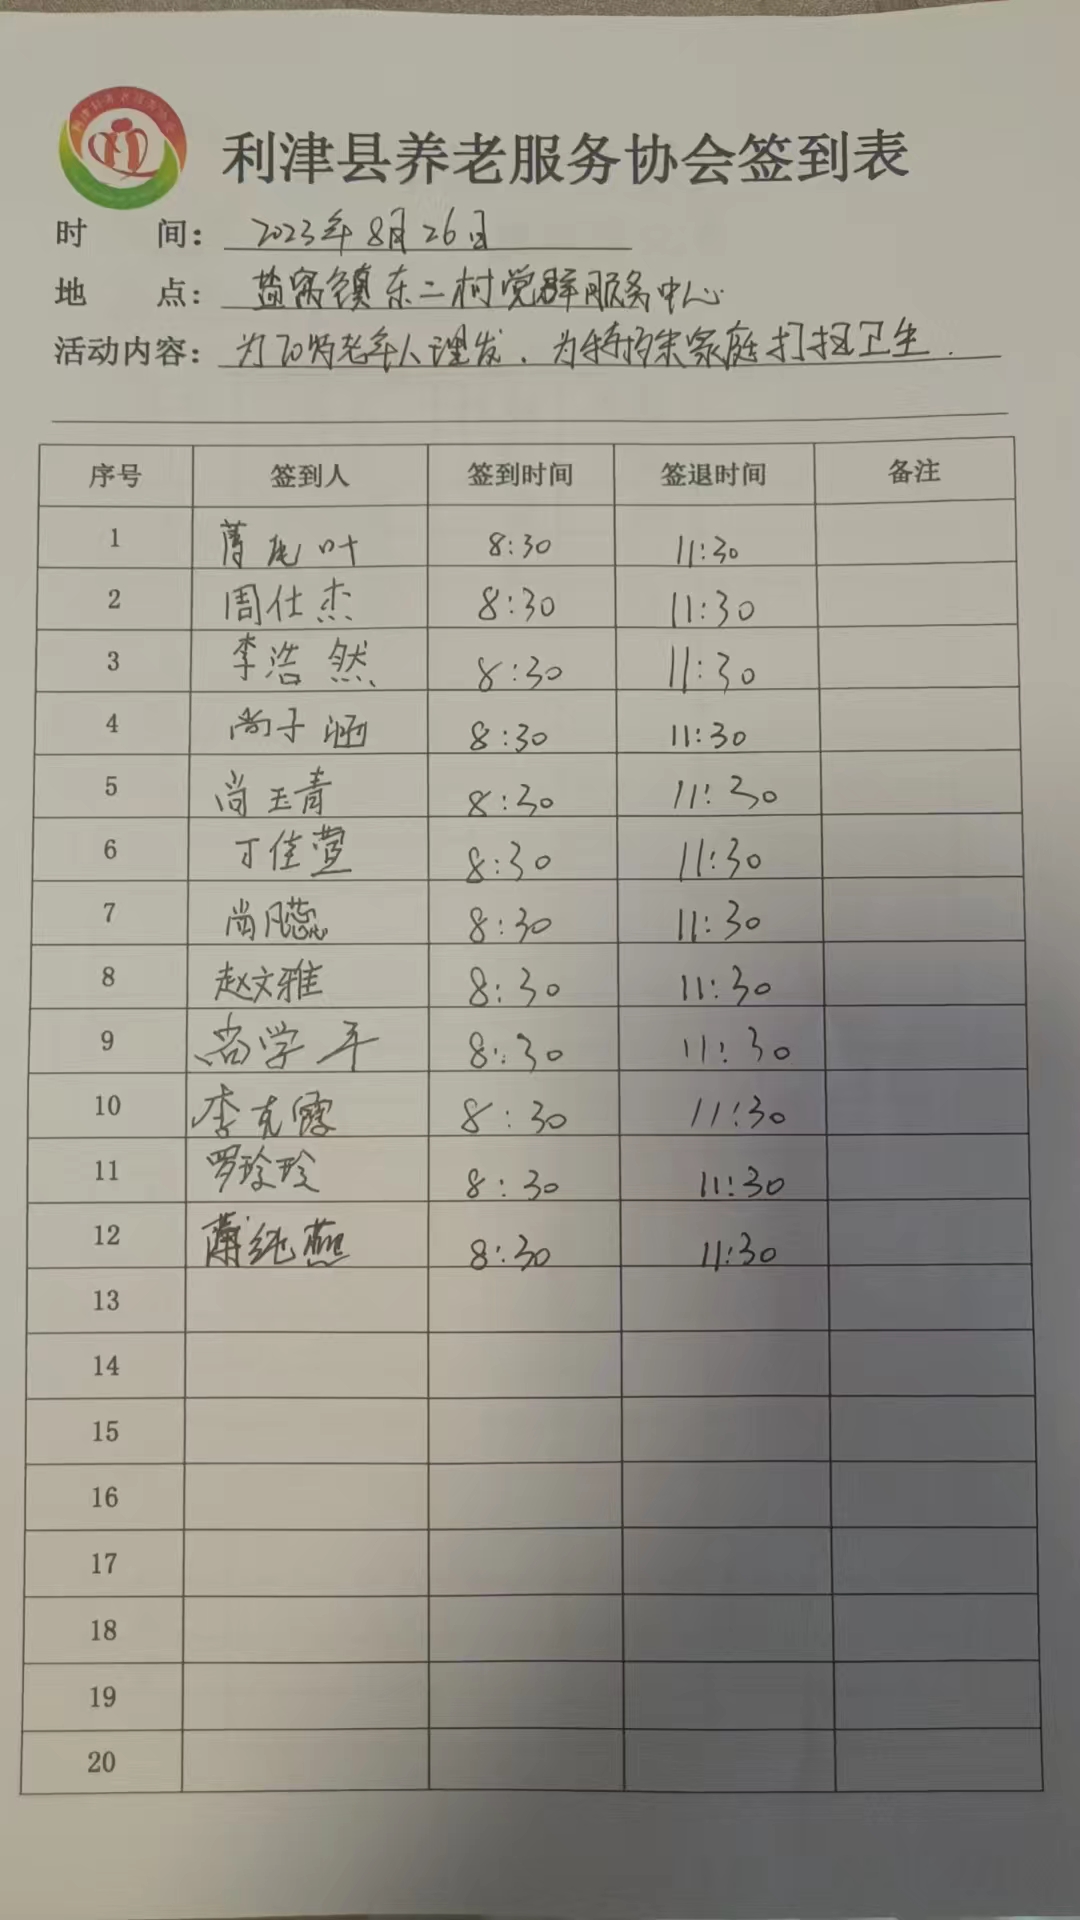 利津县养老服务协会签到表
时 间： 2023年8月26日
地 点： 盐窝镇东二村党群服务中心
活动内容： 为70岁老年人理发，为特殊家庭打扫卫生.
序号 签到人 签到时间 签退时间 备注
1 叶 8:30 11:30
2 周仕杰 8:30 11:30
3 李浩然 8:30 11:30
4 尚子涵 8:30 11:30
5 尚玉青 8:30 11:30
6 丁佳萱 8:30 11:30
7 尚凡蕊 8:30 11:30
8 赵文雅 8:30 11:30
9 尚学平 8:30 11:30
10 李克霞 8:30 11:30
11 罗玲玲 8:30 11:30
12 薄纯燕 8:30 11:30
13
14
15
16
17
18
19
20